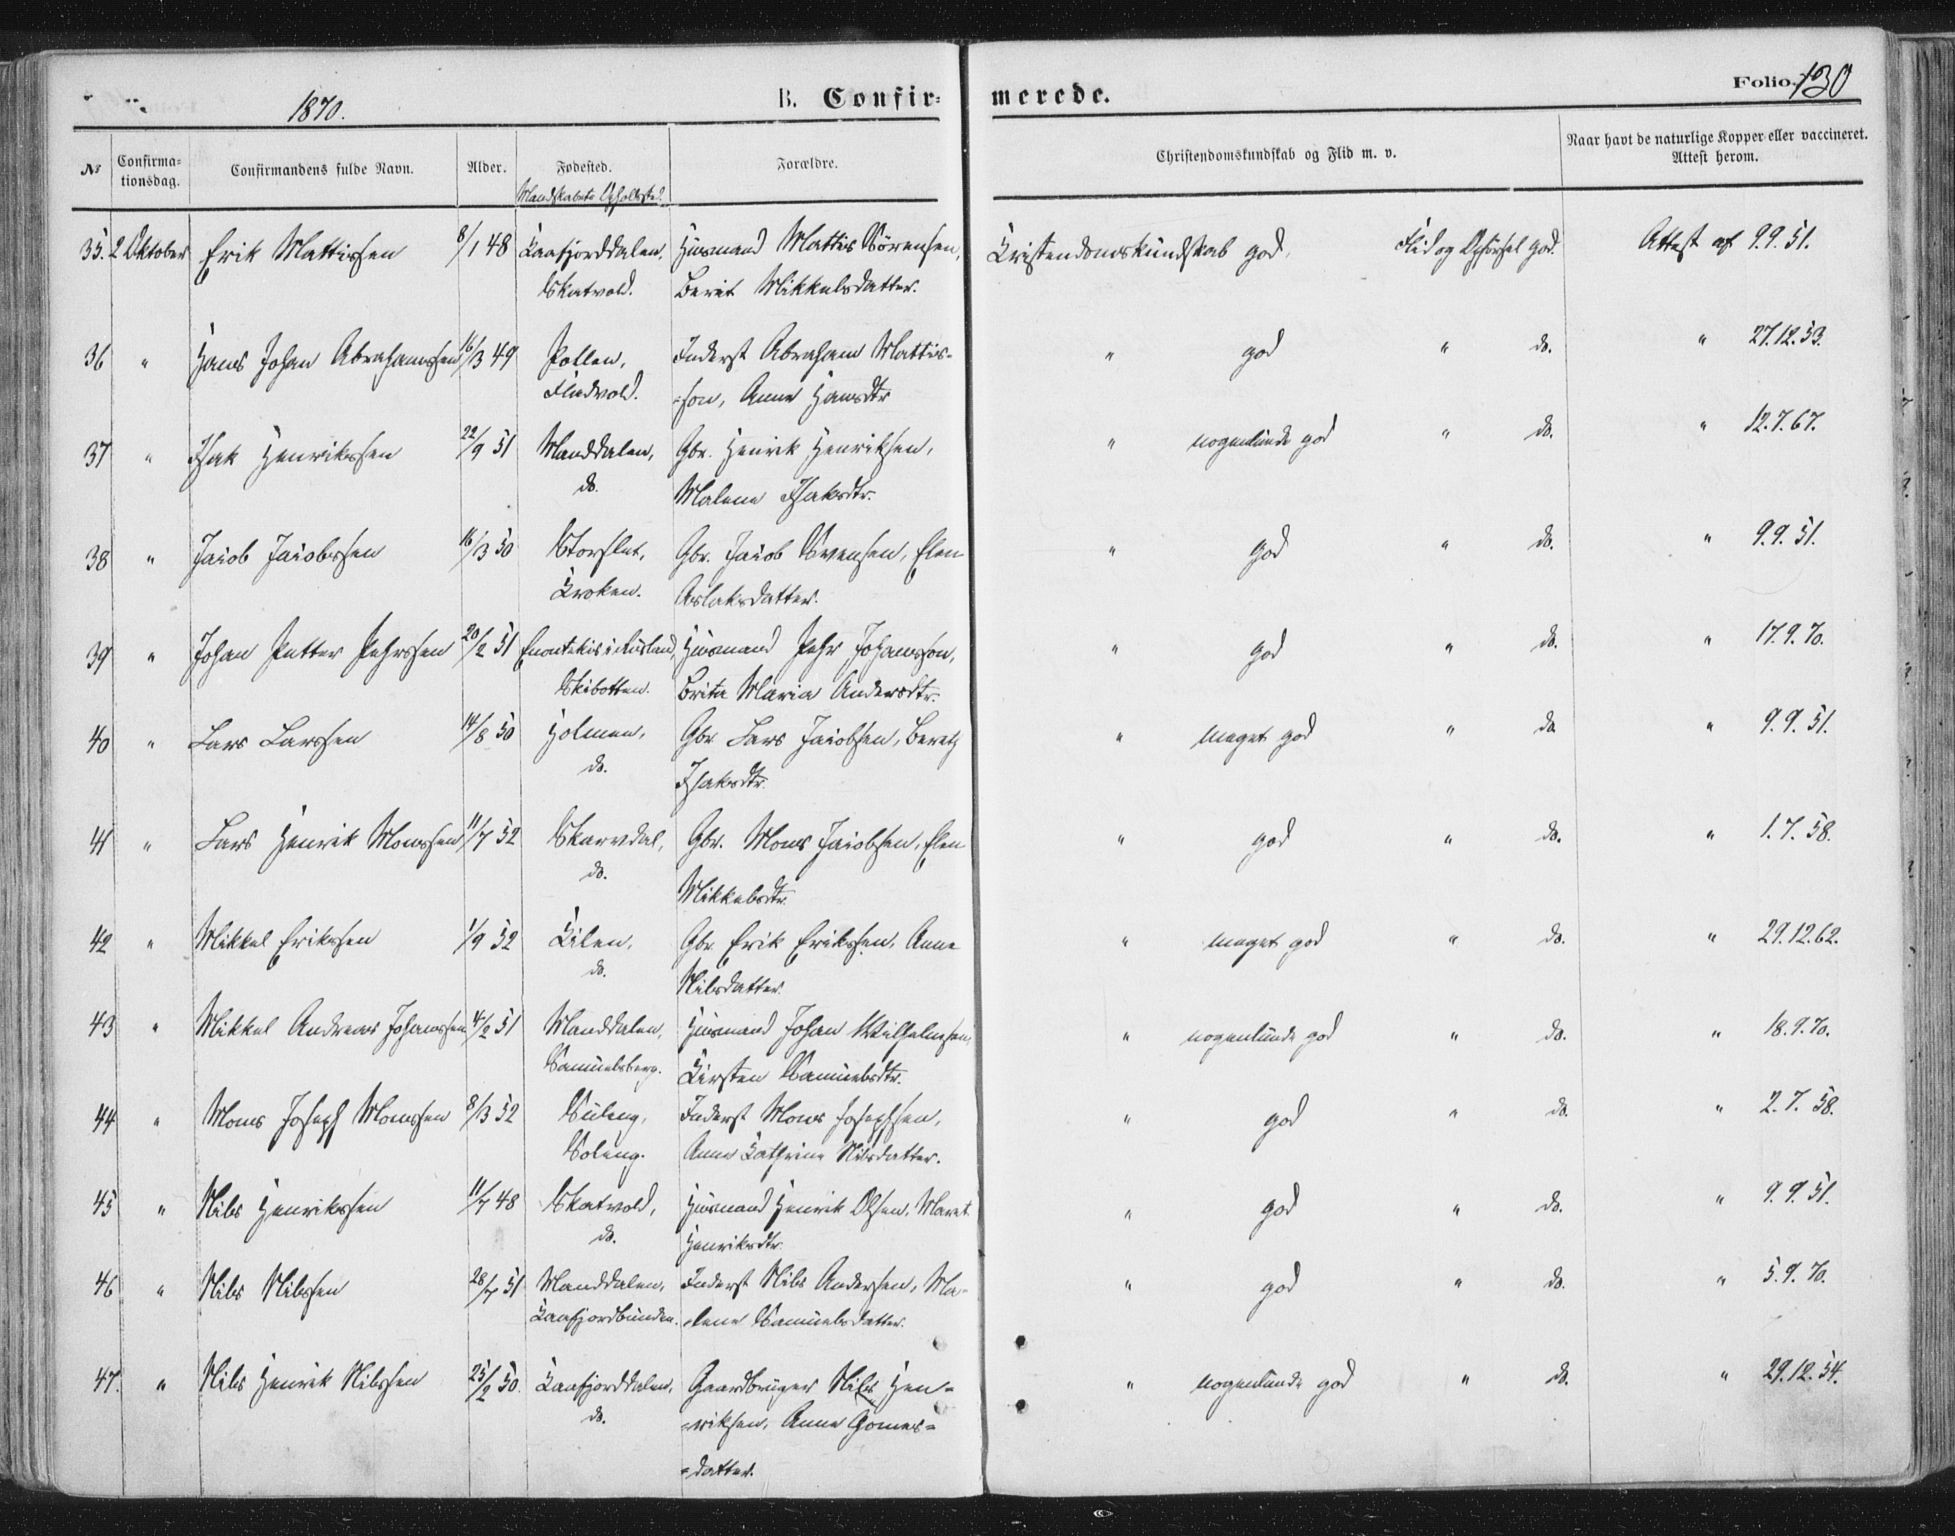 1870. B. Confir- merede. Folio. 130
№ Confirma- tionsdag. Confirmandens fulde Navn. Alder. Fødested. Forældre. Christendomskundskab og Flid m. v. Naar havt de naturlige Kopper eller vaccineret. Attest herom.
35. 2 Oktober Erik Mattissen 8/1 48 Kaafjorddalen, Husmand Mattis Sörensen, Kristendomskundskab god, Flid og Opförsel god. Attest af 9.9.51.
Skatvold. Berit Mikkelsdatter.
36 " Hans Johan Abrahamssen 16/3 49 Pollen, Inderst Abraham Mattis- " god " do. " 27.12.53.
Fladvold. -son, Anne Hansdtr
37 " Isak Henrikssen 22/9 51 Manddalen, Gbr. Henrik Henriksen, " nogenlunde god " do. " 12.7.67.
do. Malene Isaksdtr.
38 " Jacob Jacobssen 16/3 50 Storslet, Gbr. Jacob Svensen, Elen " god " do. " 9.9.51.
Kroken. Aslaksdatter.
39 " Johan Petter Pehrssen 20/2 51 Enontekis i Rusland, Husmand Pehr Johansson, " god " do. " 17.9.70.
Skibotten. Brita Maria Andersdtr.
40 " Lars Larssen 14/8 50 Holmen, Gbr Lars Jacobsen, Bereth " meget god " do " 9.9.51.
do. Isaksdtr.
41 " Lars Henrik Monssen 11/7 52 Skarvdal, Gbr. Mons Jacobsen, Elen " god " do. " 1.7.58.
do. Mikkelsdtr.
42 " Mikkel Erikssen 1/9 52 Kilen, Gbr Erik Erikssen, Anne " meget god " do. " 29.12.62.
do. Nilsdatter.
43 " Mikkel Andreas Johanssen 4/2 51 Manddalen, Husmand Johan Wilhelmsen, " nogenlunde god " do. " 18.9.70.
Samuelsberg. Kirsten Samuelsdtr.
44 " Mons Joseph Monssen 8/3 52 Suleng, Inderst Mons Josephsen, " god " do. " 2.7.58.
Soleng. Anne Cathrine Nilsdatter.
45 " Nils Henrikssen 11/7 48 Skatvold, Husmand Henrik Olsen, Maret " god " do. " 9.9.51.
do. Henriksdtr.
46 " Nils Nilssen 28/7 51 Manddalen, Inderst Nils Andersen, Ma- " god " do. " 5.9.70.
Kaafjordbunden. -lene Samuelsdatter.
47. " Nils Henrik Nilssen 25/2 50. Kaafjorddalen, Gaardbruger Nils Hen- " nogenlunde god " do. " 29.12.54.
do. -riksen, Anne Gomes-
-datter.